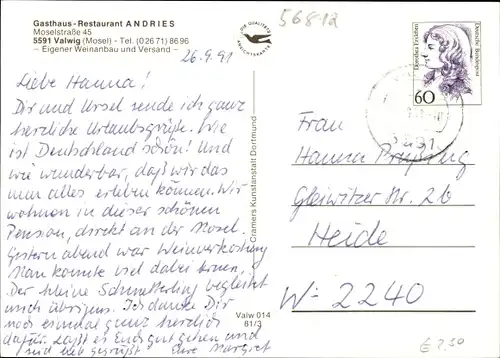 Gasthaus-Restaurant ANDRIES
Moselstraße 45
5591 Valwig (Mosel) - Tel. (02671) 8696
– Eigener Weinanbau und Versand –
26.9.91
Liebe Hanna!
Dir und Ursel sende ich ganz
herzliche Urlaubsgrüße. Wie
ist Deutschland schön! Und
wie wunderbar, daß wir das
nun alles erleben können. Wir
wohnen in dieser schönen
Pension, direkt an der Mosel.
Gestern abend war Weinverkostung
Man konnte viel dabei lernen.
Der kleine Schmetterling begleitet
mich übrigens. Ich danke Dir
noch einmal ganz herzlich
dafür. Laßt es Euch gut gehen und
seid lieb gegrüßt Eure Margret
Cramers Kunstanstalt Dortmund
Valw 014
81/3
56812
Dorothea Erxleben
Deutsche Bundespost
60
Frau
Hanna
Gleiwitzer Str. 26
Heide
W-2240
€ 2.50